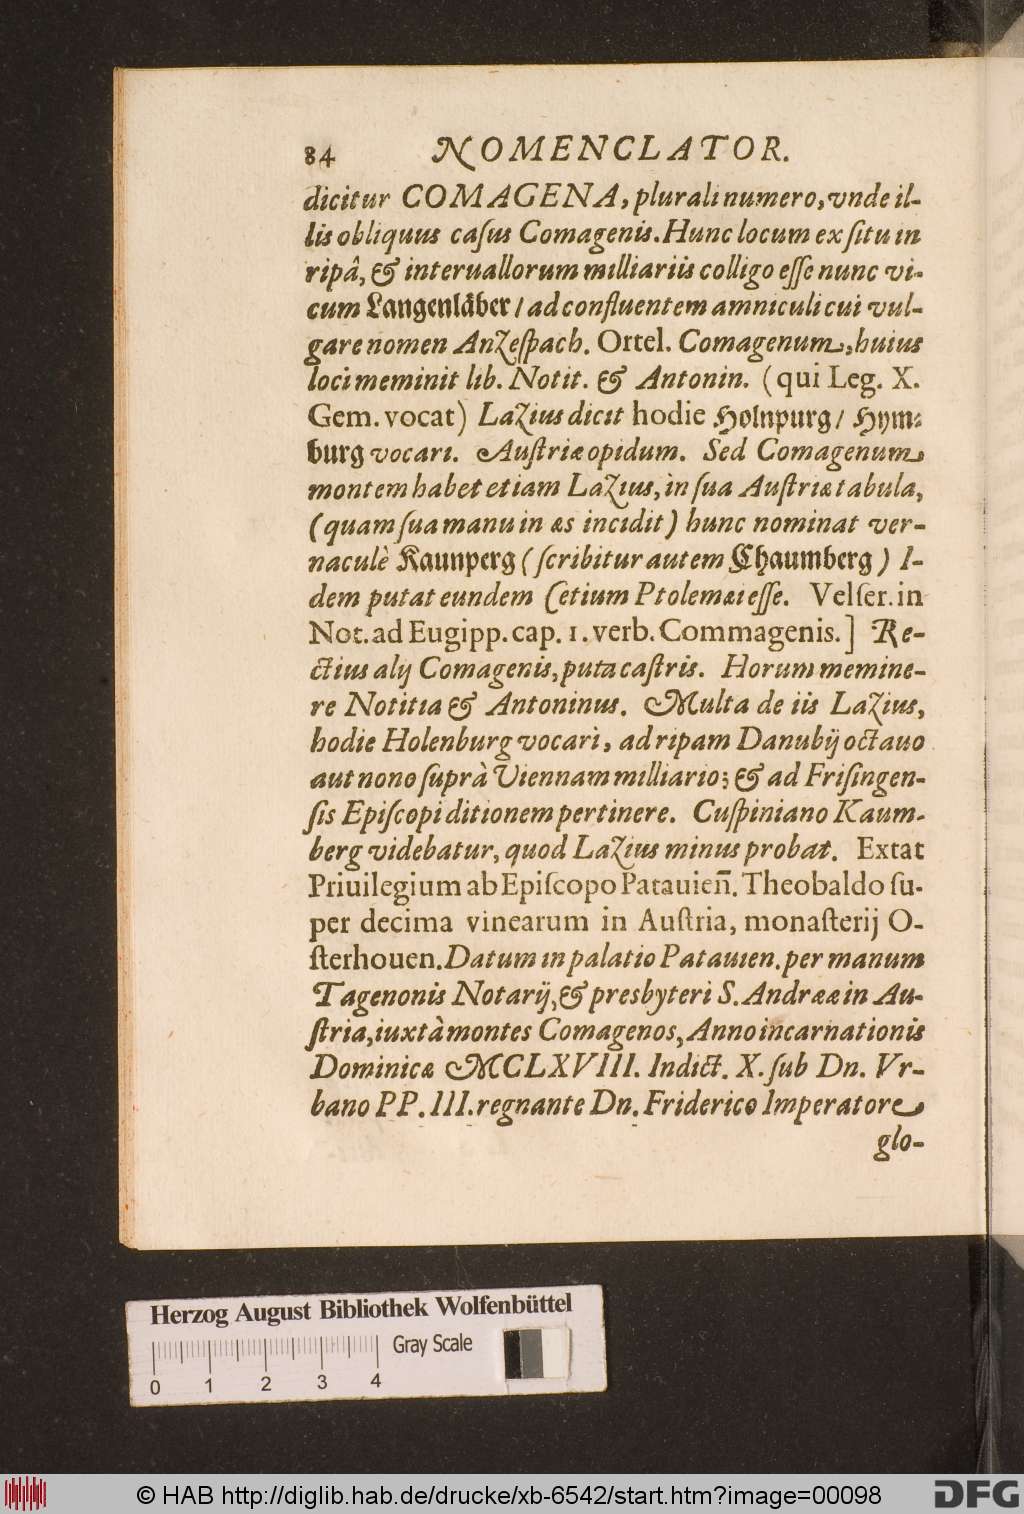 84 NOMENCLATOR.
dicitur COMAGENA, plurali numero, vnde il-
lis obliquus caſus Comagenis. Hunc locum ex ſitu in
ripâ, & interuallorum milliariis colligo eſſe nunc vi-
cum Langenlåber / ad confluentem amniculi cui vul-
gare nomen Anzeſpach. Ortel. Comagenum, huius
loci meminit lib. Notit. & Antonin. (qui Leg. X.
Gem. vocat) Lazius dicit hodie Holnpurg / Hym-
burg vocari. Auſtriæ opidum. Sed Comagenum
montem habet etiam Lazius, in ſua Auſtriæ tabula,
(quam ſua manu in æs incidit) hunc nominat ver-
naculè Kaunperg (ſcribitur autem Chaumberg) I-
dem putat eundem Cetium Ptolemæi eſſe. Velſer. in
Not. ad Eugipp. cap. 1. verb. Commagenis.] Re-
ctius alij Comagenis, puta caſtris. Horum memine-
re Notitia & Antoninus. Multa de iis Lazius,
hodie Holenburg vocari, ad ripam Danubij octauo
aut nono ſuprà Viennam milliario; & ad Friſingen-
ſis Epiſcopi ditionem pertinere. Cuſpiniano Kaum-
berg videbatur, quod Lazius minus probat. Extat
Priuilegium ab Epiſcopo Patauień. Theobaldo ſu-
per decima vinearum in Auſtria, monaſterij O-
ſterhouen. Datum in palatio Patauien. per manum
Tagenonis Notarij, & presbyteri S. Andreæ in Au-
ſtria, iuxtà montes Comagenos, Anno incarnationis
Dominicæ MCLXVIII. Indict. X. ſub Dn. Vr-
bano PP. III. regnante Dn. Friderico Imperatore
glo-
Herzog August Bibliothek Wolfenbüttel
Gray Scale
0 1 2 3 4
© HAB http://diglib.hab.de/drucke/xb-6542/start.htm?image=00098
DFG